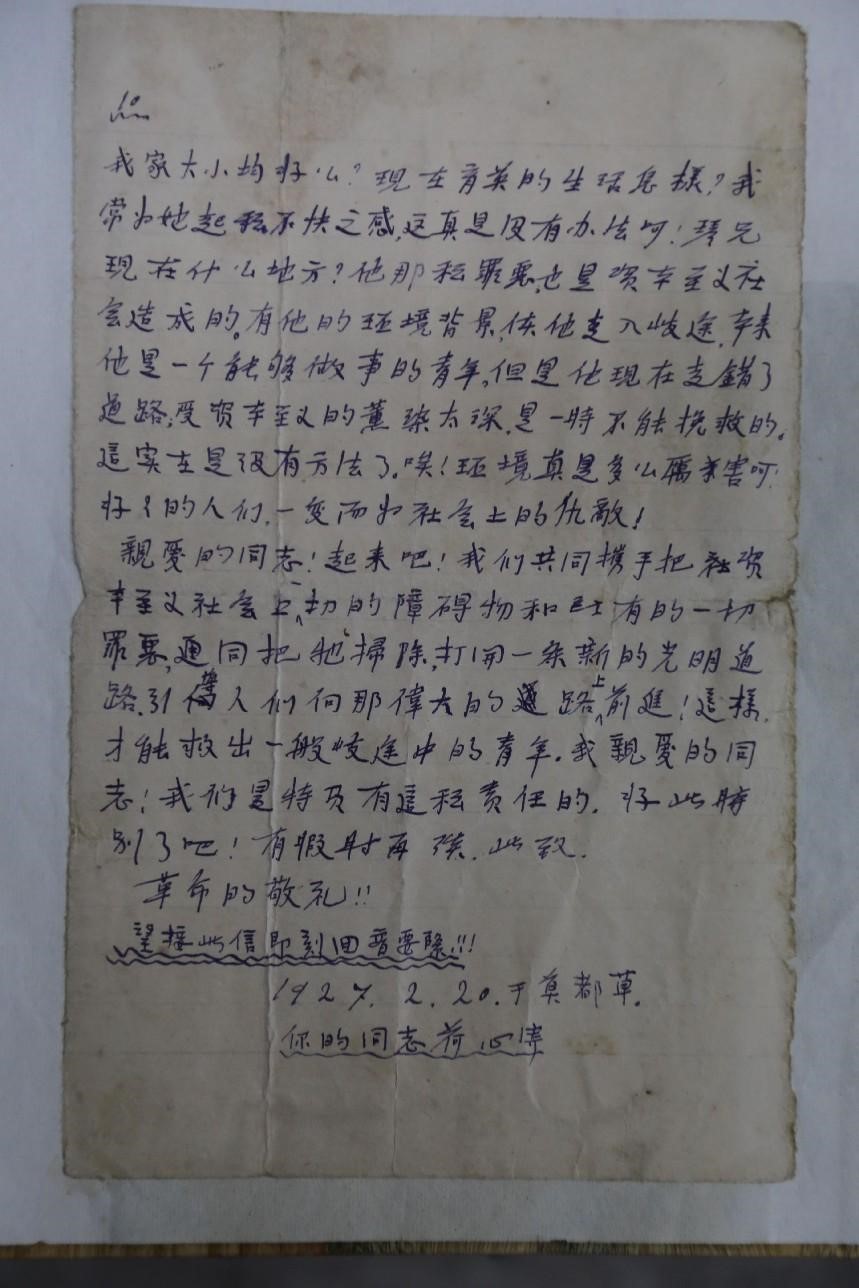 我家大小均好么？现在育英的生活怎樣？我
常为她起種不快之感,这真是没有办法呵！琴兄
現在什么地方？他那種罪惡,也是资本主义社
会造成的。有他的环境背景,使他走入歧途,本来
他是一个能够做事的青年,但是他現在走錯了
道路,受资本主义的薰染太深,是一時不能挽救的。
這实在是没有方法了。唉！环境真是多么厲害呵
好好的人们,一变而为社会上的仇敵！
親愛的同志！起来吧！我们共同携手把资
本主义社会上一切的障碍物和所有的一切
罪惡,通同把牠掃除,打開一条新的光明道
路,引導人们向那偉大的道路上前進！這樣,
才能救出一般歧途中的青年。我親愛的同
志！我们是特及有這種责任的。好此時
别了吧！有暇时再談。此致.
革命的敬礼!!
望接此信即刻回音要緊!!!
1927. 2. 20. 于莫都草.
你的同志荷心偉